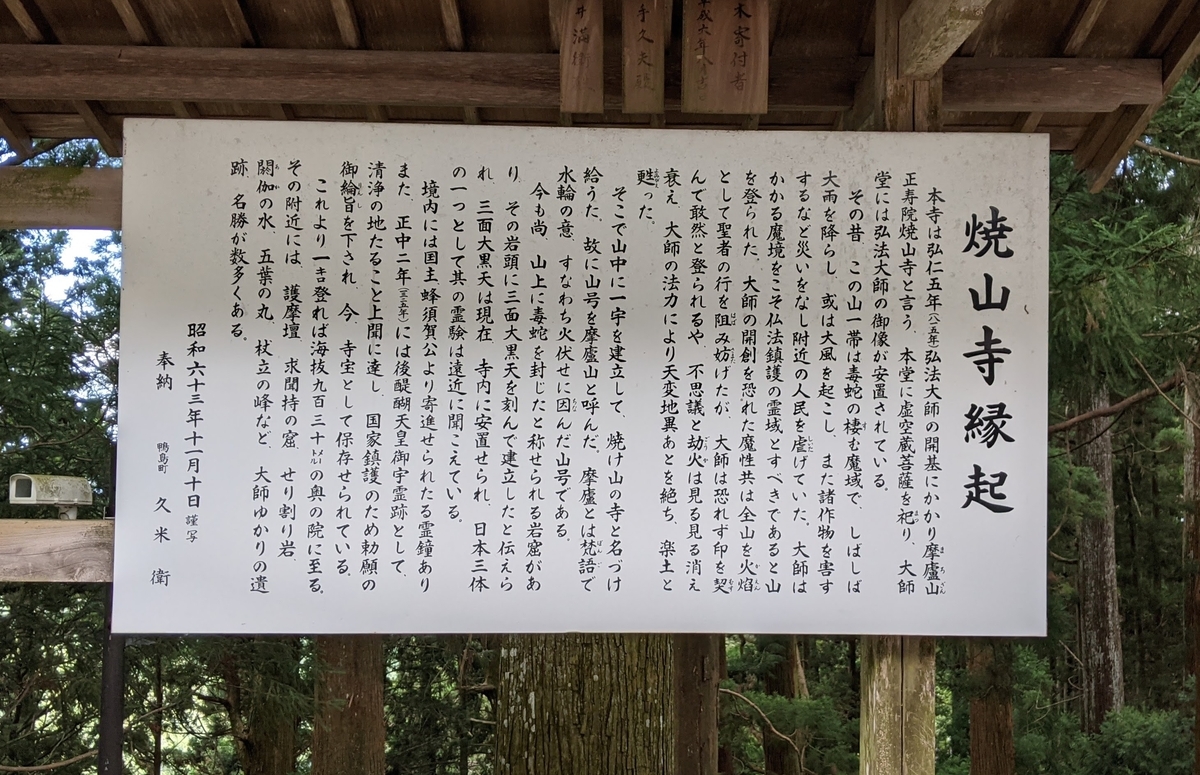 焼山寺縁起
本寺は弘仁五年(八一五年)弘法大師の開基にかかり摩廬山
正寿院焼山寺と言う、本堂に虚空蔵菩薩を祀り、大師
堂には弘法大師の御像が安置されている。
その昔、この山一帯は毒蛇の棲む魔域で、しばしば
大雨を降らし、或は大風を起こし、また諸作物を害す
るなど災いをなし附近の人民を虐げていた。大師は
かかる魔境をこそ仏法鎮護の霊域とすべきであると山
を登られた、大師の開創を恐れた魔性共は全山を火焰
として聖者の行を阻み妨げたが、大師は恐れず印を契
んで敢然と登られるや、不思議と劫火は見る見る消え
衰え、大師の法力により天変地異あとを絶ち、楽土と
甦った、
そこで山中に一宇を建立して、焼け山の寺と名づけ
給うた、故に山号を摩廬山と呼んだ、摩廬とは梵語で
水輪の意、すなわち火伏せに因んだ山号である。
今も尚、山上に毒蛇を封じたと称せられる岩窟があ
り、その岩頭に三面大黒天を刻んで建立したと伝えら
れ、三面大黒天は現在、寺内に安置せられ、日本三体
の一つとして其の霊験は遠近に聞こえている。
境内には国主、蜂須賀公より寄進せられたる霊鐘あり
また、正中二年(一三二五年)には後醍醐天皇御宇霊跡として、
清浄の地たること上聞に達し、国家鎮護のため勅願の
御綸旨を下され、今、寺宝として保存せられている、
これより一キロ登れば海抜九百三十㍍の奥の院に至る、
その附近には、護摩壇、求聞持の窟、せり割り岩、
閼伽の水、五葉の丸、杖立の峰など、大師ゆかりの遺
跡、名勝が数多くある。
昭和六十三年十一月十日 謹写
奉納 鴨島町 久米 衛
木寄付者
手久夫